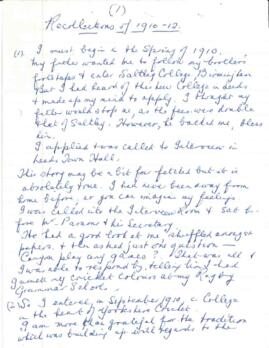 (1)
Recollections of 1910-12.
(1). I must begin in the Spring of 1910.
My father wanted me to follow my brother's
footsteps & enter Saltley College, Birmingham
But I had heard of the new College in Leeds
& made up my mind to apply. I thought my
father would stop me, as the fees were double
that of Saltley. However, he backed me, bless
him.
I applied & was called to Interview in
Leeds Town Hall.
This story may be a bit far fetched but it is
absolutely true. I had never been away from
home before, so you can imagine my feelings
I was called into the Interview Room & Sat be
fore Dr Parsons & his Secretary.
He had a good look at me, shuffled amongst
papers, & then asked just one question —
Can you play any games? That was all &
I was able to respond by telling him I had
gained my cricket colours at my Rugby
Grammar School.
(2) So I entered, in September 1910, a College
in the heart of Yorkshire Cricket
I am more than grateful for the tradition
which was building up with regards to the